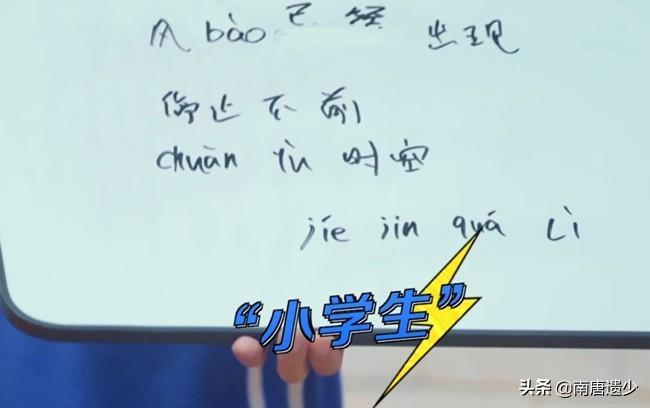 风bào已经出现
停止不前
chuàn Yù时空
jíe jìn quá Lì
“小学生”
头条 @南唐遗少